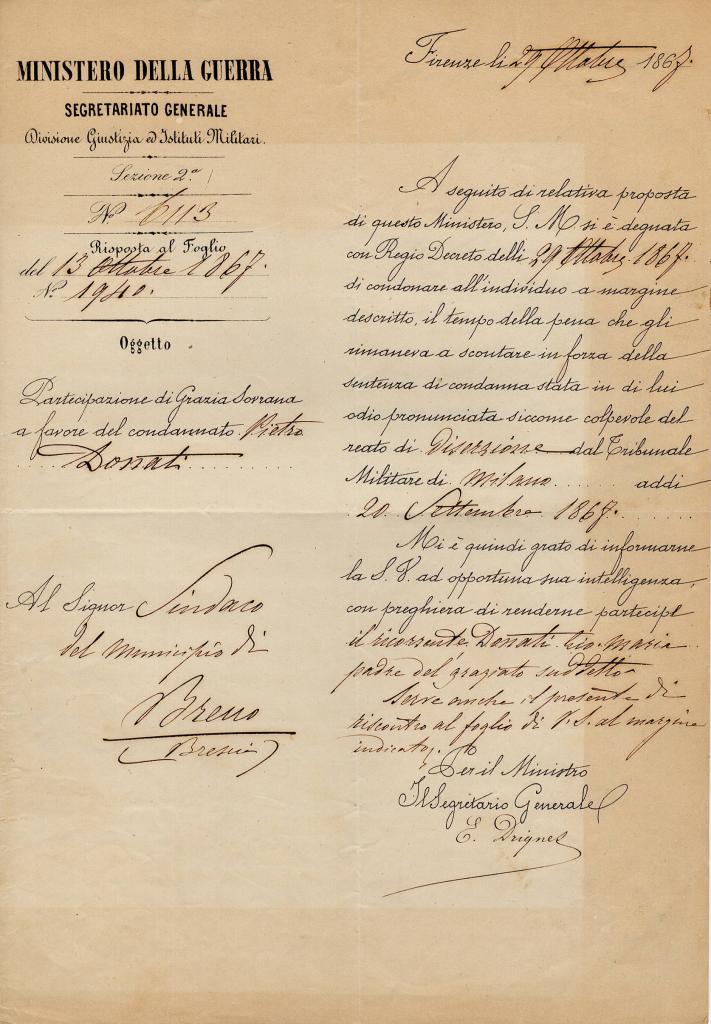 MINISTERO DELLA GUERRA
SEGRETARIATO GENERALE
Divisione Giustizia ed Istituti Militari.
Sezione 2.ª
N.º 6113
Risposta al Foglio
del 13 Ottobre 1867.
N.º 1940.
Oggetto
Partecipazione di Grazia Sovrana
a favore del condannato Pietro
Donati
Al Signor Sindaco
del Municipio di
Breno
(Brescia)
Firenze li 29 Ottobre 1867.
A seguito di relativa proposta
di questo Ministero, S. M. si è degnata
con Regio Decreto delli 29 Ottobre 1867.
di condonare all'individuo a margine
descritto, il tempo della pena che gli
rimaneva a scontare in forza della
sentenza di condanna stata in di lui
odio pronunciata siccome colpevole del
reato di Diserzione dal Tribunale
Militare di Milano addi
20 Settembre 1867.
Mi è quindi grato di informarne
la S. V. ad opportuna sua intelligenza,
con preghiera di renderne partecipe
il ricorrente Donati Gio. Maria
padre del graziato suddetto
Serve anche il presente di
riscontro al foglio di V. S. al margine
indicato.
Per il Ministro
Il Segretario Generale
E. Driquet